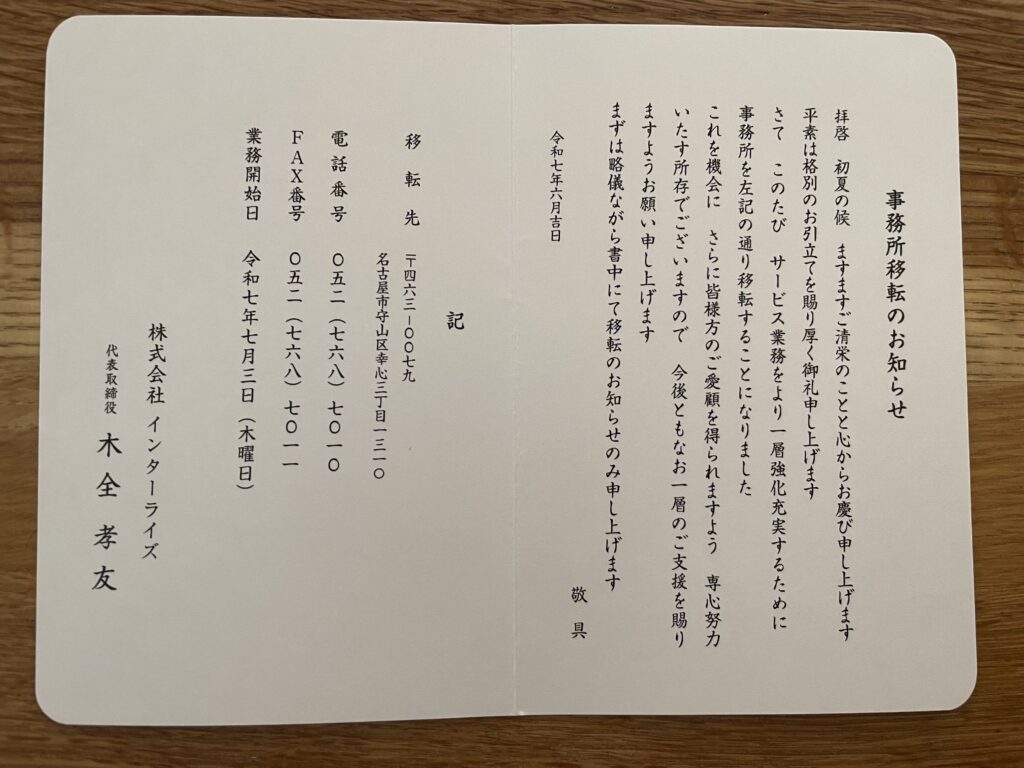 事務所移転のお知らせ
拝啓　初夏の候　ますますご清栄のことと心からお慶び申し上げます
平素は格別のお引立てを賜り厚く御礼申し上げます
さて　このたび　サービス業務をより一層強化充実するために
事務所を左記の通り移転することになりました
これを機会に　さらに皆様方のご愛顧を得られますよう　専心努力
いたす所存でございますので　今後ともなお一層のご支援を賜り
ますようお願い申し上げます
まずは略儀ながら書中にて移転のお知らせのみ申し上げます
敬具
令和七年六月吉日
記
移転先　〒四六三－〇〇七九
名古屋市守山区幸心三丁目一三一〇
電話番号　〇五二（七六八）七〇一〇
ＦＡＸ番号　〇五二（七六八）七〇一一
業務開始日　令和七年七月三日（木曜日）
株式会社 インターライズ
代表取締役　木全孝友